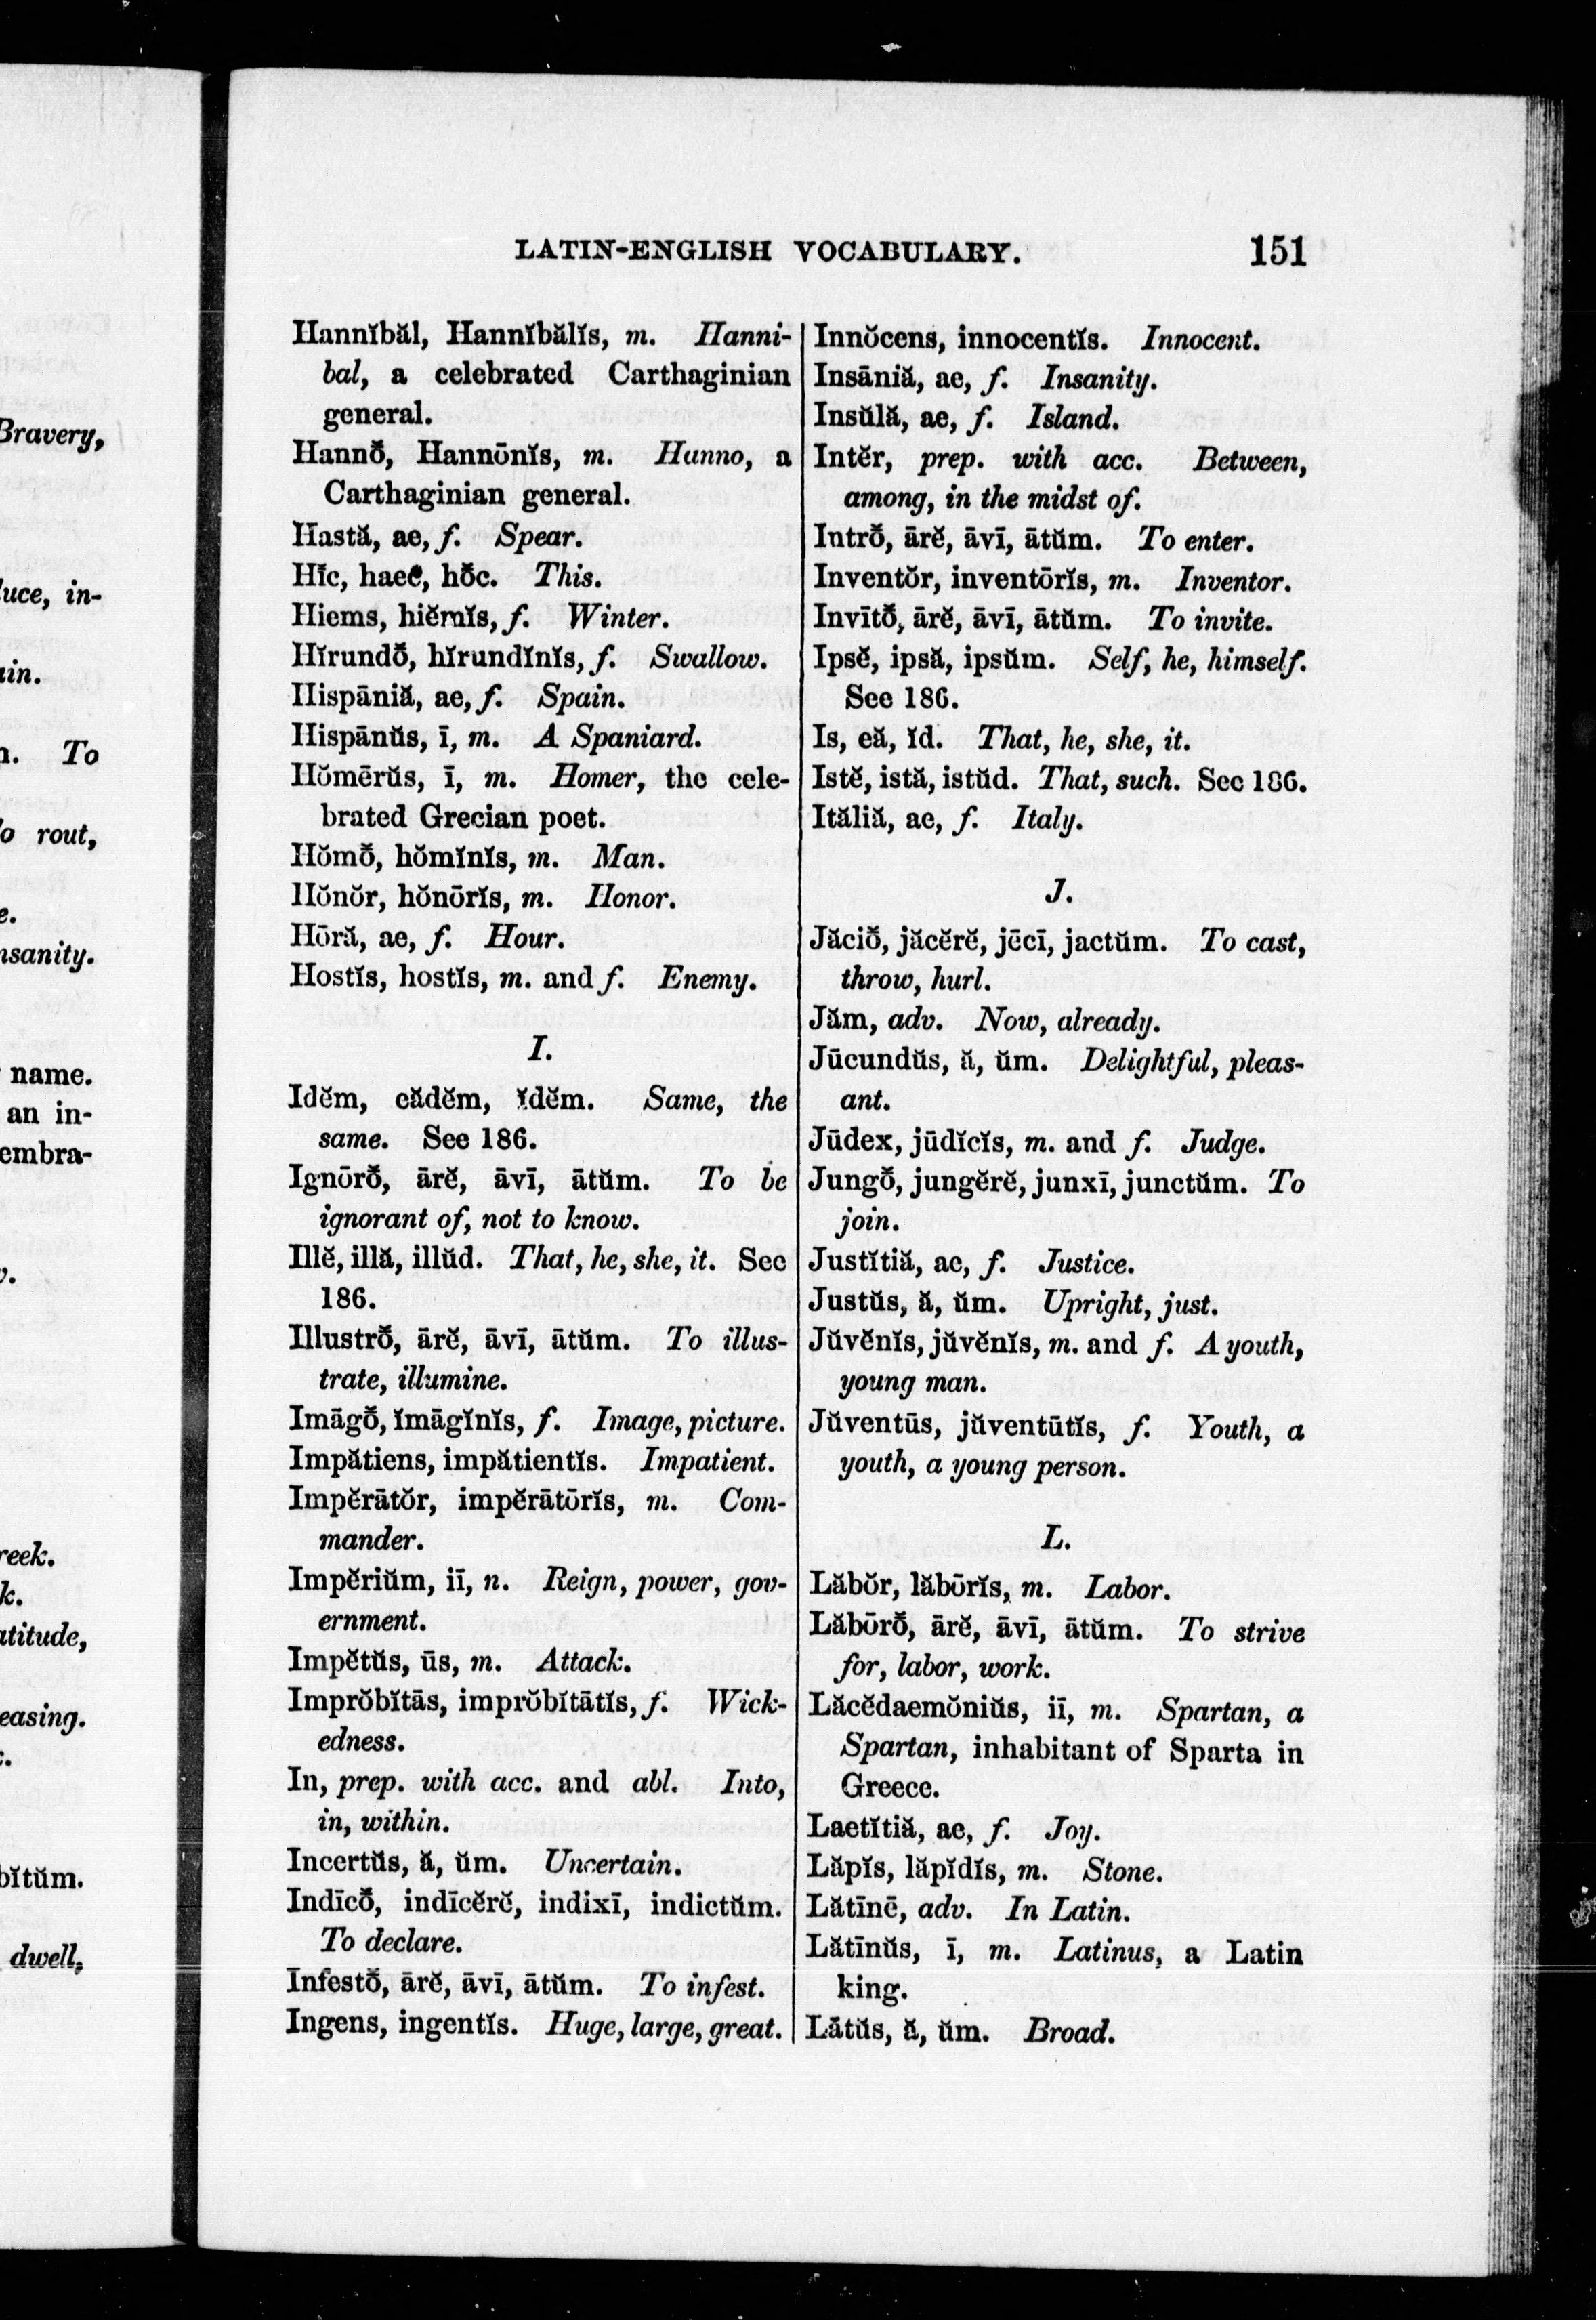 Bravery,
luce, in-
ain.
n. To
o rout,
e.
nsanity.
name.
an in-
embra-
v.
reek.
k.
atitude,
easing.
bĭtŭm.
dwell,
LATIN-ENGLISH VOCABULARY. 151
Hannĭbăl, Hannĭbălĭs, m. Hanni-
bal, a celebrated Carthaginian
general.
Hannŏ̄, Hannōnĭs, m. Hanno, a
Carthaginian general.
Hastă, ae, f. Spear.
Hĭ̄c, haec, hŏ̄c. This.
Hiems, hiĕmĭs, f. Winter.
Hĭrundŏ̄, hĭrundĭnĭs, f. Swallow.
Hispāniă, ae, f. Spain.
Hispānŭs, ī, m. A Spaniard.
Hŏmērŭs, ī, m. Homer, the cele-
brated Grecian poet.
Hŏmŏ̄, hŏmĭnĭs, m. Man.
Hŏnŏr, hŏnōrĭs, m. Honor.
Hōră, ae, f. Hour.
Hostĭs, hostĭs, m. and f. Enemy.
I.
Idĕm, eădĕm, ĭdĕm. Same, the
same. See 186.
Ignōrŏ̄, ārĕ, āvī, ātŭm. To be
ignorant of, not to know.
Illĕ, illă, illŭd. That, he, she, it. See
186.
Illustrŏ̄, ārĕ, āvī, ātŭm. To illus-
trate, illumine.
Imāgŏ̄, ĭmāgĭnĭs, f. Image, picture.
Impătiens, impătientĭs. Impatient.
Impĕrātŏr, impĕrātōrĭs, m. Com-
mander.
Impĕriŭm, iī, n. Reign, power, gov-
ernment.
Impĕtŭs, ūs, m. Attack.
Imprŏbĭtās, imprŏbĭtātĭs, f. Wick-
edness.
In, prep. with acc. and abl. Into,
in, within.
Incertŭs, ă, ŭm. Uncertain.
Indīcŏ̄, indīcĕrĕ, indixī, indictŭm.
To declare.
Infestŏ̄, ārĕ, āvī, ātŭm. To infest.
Ingens, ingentĭs. Huge, large, great.
Innŏcens, innocentĭs. Innocent.
Insāniă, ae, f. Insanity.
Insŭlă, ae, f. Island.
Intĕr, prep. with acc. Between,
among, in the midst of.
Intrŏ̄, ārĕ, āvī, ātŭm. To enter.
Inventŏr, inventōrĭs, m. Inventor.
Invītŏ̄, ārĕ, āvī, ātŭm. To invite.
Ipsĕ, ipsă, ipsŭm. Self, he, himself.
See 186.
Is, eă, ĭd. That, he, she, it.
Istĕ, istă, istŭd. That, such. See 186.
Ităliă, ae, f. Italy.
J.
Jăciŏ̄, jăcĕrĕ, jēcī, jactŭm. To cast,
throw, hurl.
Jăm, adv. Now, already.
Jūcundŭs, ă, ŭm. Delightful, pleas-
ant.
Jūdex, jūdĭcĭs, m. and f. Judge.
Jungŏ̄, jungĕrĕ, junxī, junctŭm. To
join.
Justĭtiă, ae, f. Justice.
Justŭs, ă, ŭm. Upright, just.
Jŭvĕnĭs, jŭvĕnĭs, m. and f. A youth,
young man.
Jŭventūs, jŭventūtĭs, f. Youth, a
youth, a young person.
L.
Lăbŏr, lăbōrĭs, m. Labor.
Lăbōrŏ̄, ārĕ, āvī, ātŭm. To strive
for, labor, work.
Lăcĕdaemŏniŭs, iī, m. Spartan, a
Spartan, inhabitant of Sparta in
Greece.
Laetĭtiă, ae, f. Joy.
Lăpĭs, lăpĭdĭs, m. Stone.
Lătīnē, adv. In Latin.
Lătīnŭs, ī, m. Latinus, a Latin
king.
Lātŭs, ă, ŭm. Broad.